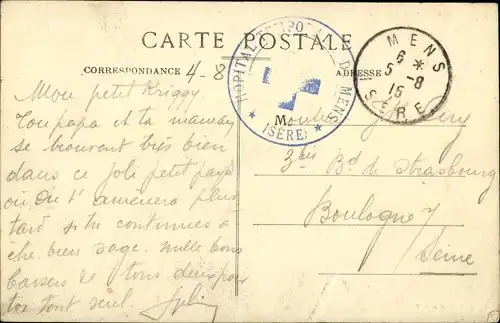 CARTE POSTALE
CORRESPONDANCE 4-8
ADRESSE
HOPITAL TEMPORAIRE DE MENS
(ISÈRE)
MENS
6 *
5 -8
15
ISÈRE
Mon petit Kriggy.
Ton papa et ta maman
se trouvent très bien
dans ce joli petit pays
où on t'amènera plus
tard si tu continues à
être bien sage. Mille bons
baisers de tous deux pour
toi tout seul.
M
3 bis Bd de Strasbourg
Boulogne s/
Seine